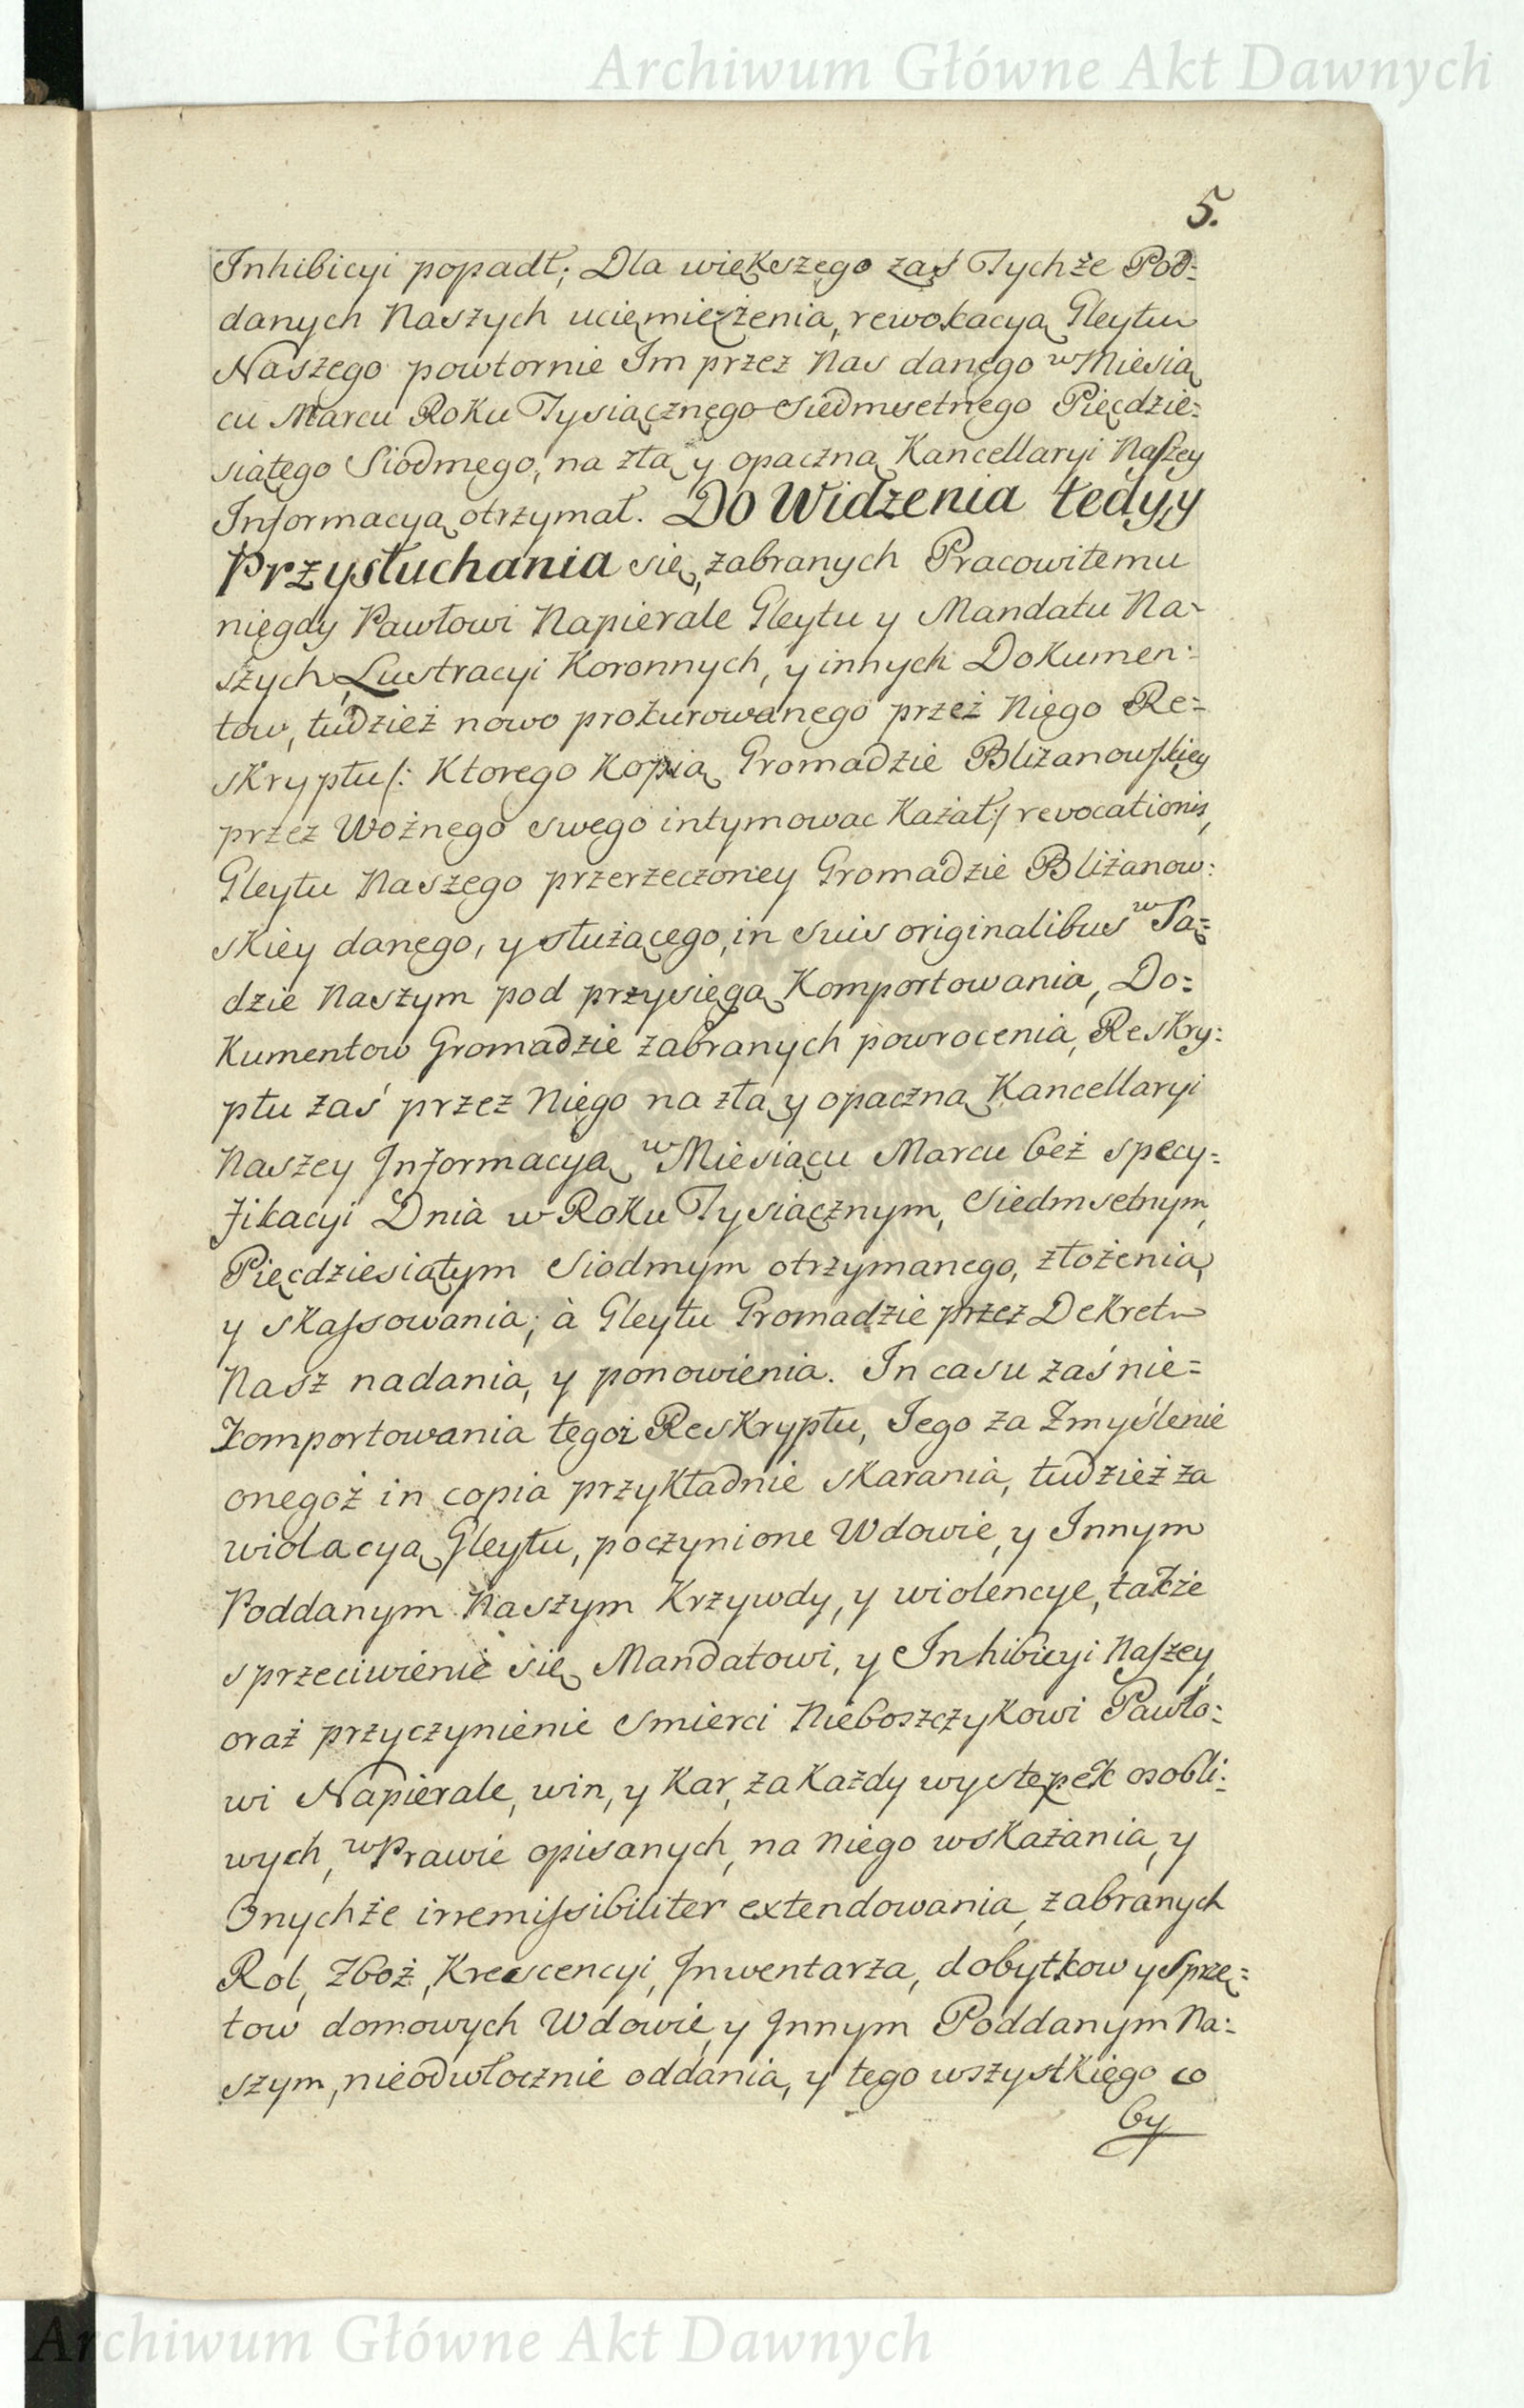 Archiwum Główne Akt Dawnych
5.
Inhibicyi popadł; Dla większego zaś Tychże Pod=
danych Naszych uciemiężenia, rewokacyą Gleytu
Naszego powtornie Im przez Nas danego w Miesią
cu Marcu Roku Tysiącznego Siedmsetnego Pięcdzie=
siątego Siodmego, na złą y opaczną Kancellaryi Naszey
Informacyą otrzymał. Do Widzenia tedy, y
Przysłuchania się, zabranych Pracowitemu
niegdy Pawłowi Napierale Gleytu y Mandatu Na=
szych, Lustracyi Koronnych, y innych Dokumen=
tow, tudzież nowo prokurowanego przez Niego Re=
skryptu /: Ktorego Kopią Gromadzie Bliżanowskiey
przez Woźnego swego intymowac Kazał :/ revocationis,
Gleytu Naszego przerzeczoney Gromadzie Bliżanow=
skiey danego, y służącego, in suis originalibus w Są=
dzie Naszym pod przysięgą Komportowania, Do=
kumentow Gromadzie zabranych powrocenia, Reskry=
ptu zaś przez Niego na złą y opaczną Kancellaryi
Naszey Informacyą w Miesiącu Marcu bez specy=
fikacyi Dnia w Roku Tysiącznym, Siedmsetnym,
Pięcdziesiątym Siodmym otrzymanego, złożenia,
y skassowania; à Gleytu Gromadzie przez Dekret
Nasz nadania, y ponowienia. In casu zaś nie=
komportowania tegoż Reskryptu, Jego za Zmyślenie
onegoż in copia przykładnie skarania, tudzież za
wiolacyą Gleytu, poczynione Wdowie, y Innym
Poddanym Naszym Krzywdy, y wiolencye, także
sprzeciwienie się Mandatowi, y Inhibicyi Naszey,
oraz przyczynienie Smierci Nieboszczykowi Pawło=
wi Napierale, win, y Kar, za Każdy występek osobli=
wych, w Prawie opisanych, na Niego wskazania, y
Onychże irremissibiliter extendowania, zabranych
Rol, Zboż, Krescencyi, Inwentarza, dobytkow y Sprzę=
tow domowych Wdowie, y Innym Poddanym Na=
szym, nieodwłocznie oddania, y tego wszystkiego co
by
Archiwum Główne Akt Dawnych